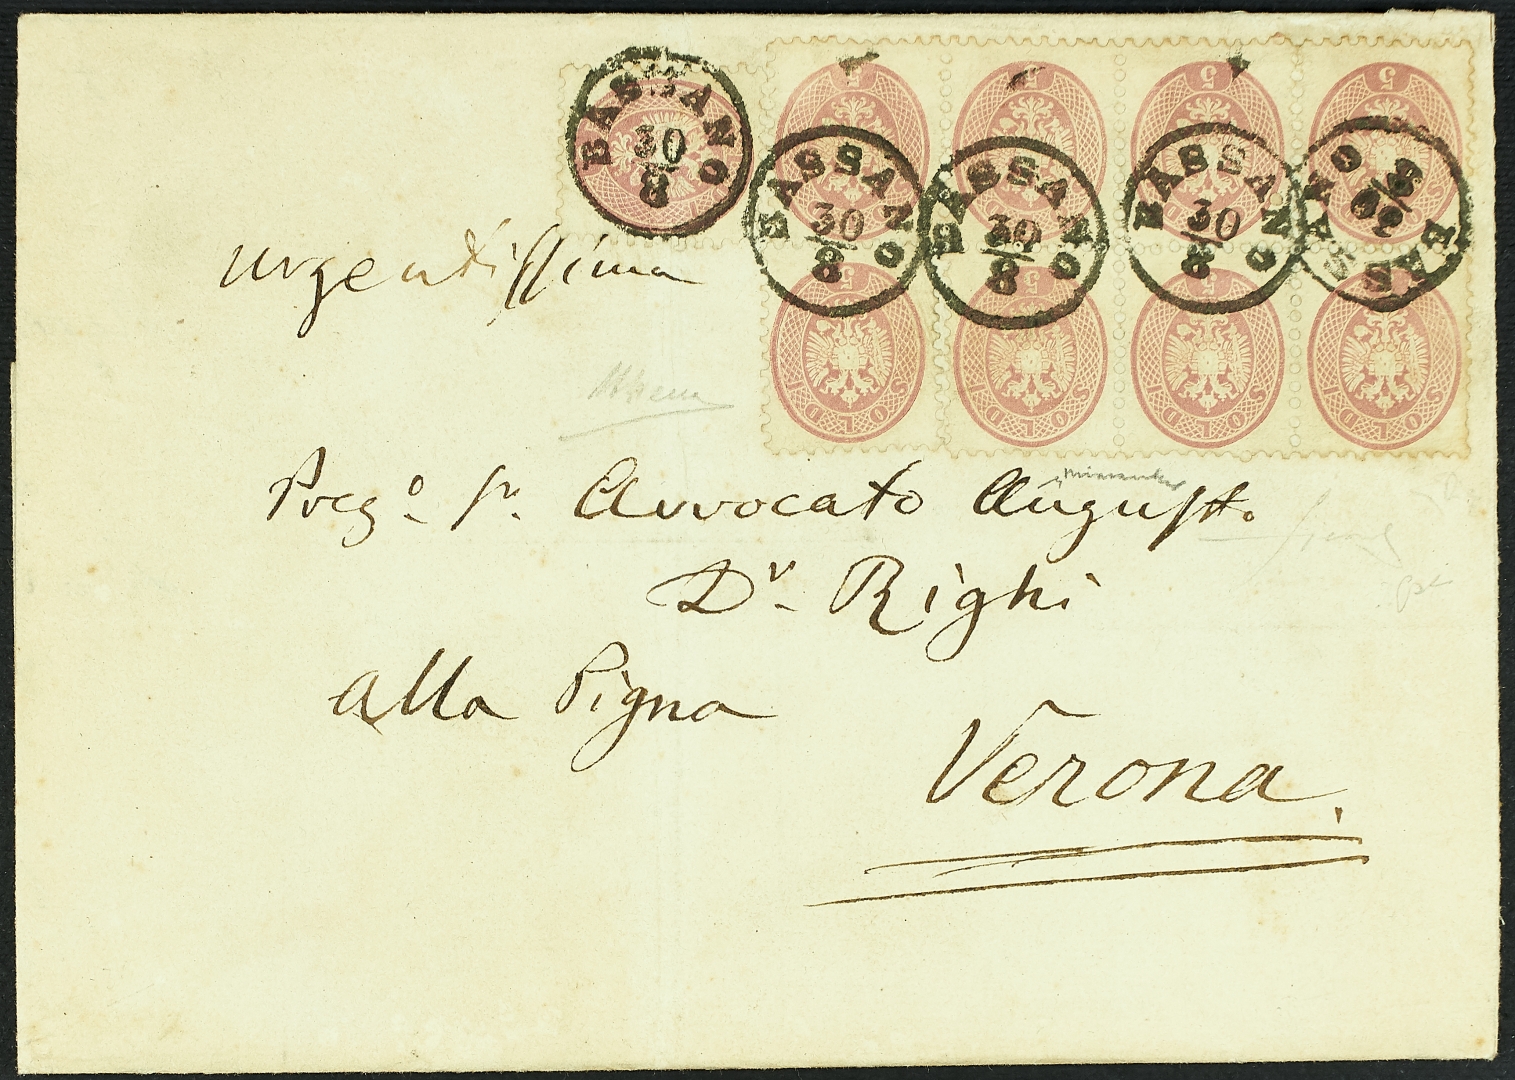 BASSANO
30
8
BASSANO
30
8
BASSANO
30
8
BASSANO
30
8
BASSANO
30
8
5 SOLDI
5 SOLDI
5 SOLDI
5 SOLDI
urgentissima
Preg.º Sr. Avvocato August.
Dr. Righi
alla Pigna
Verona.